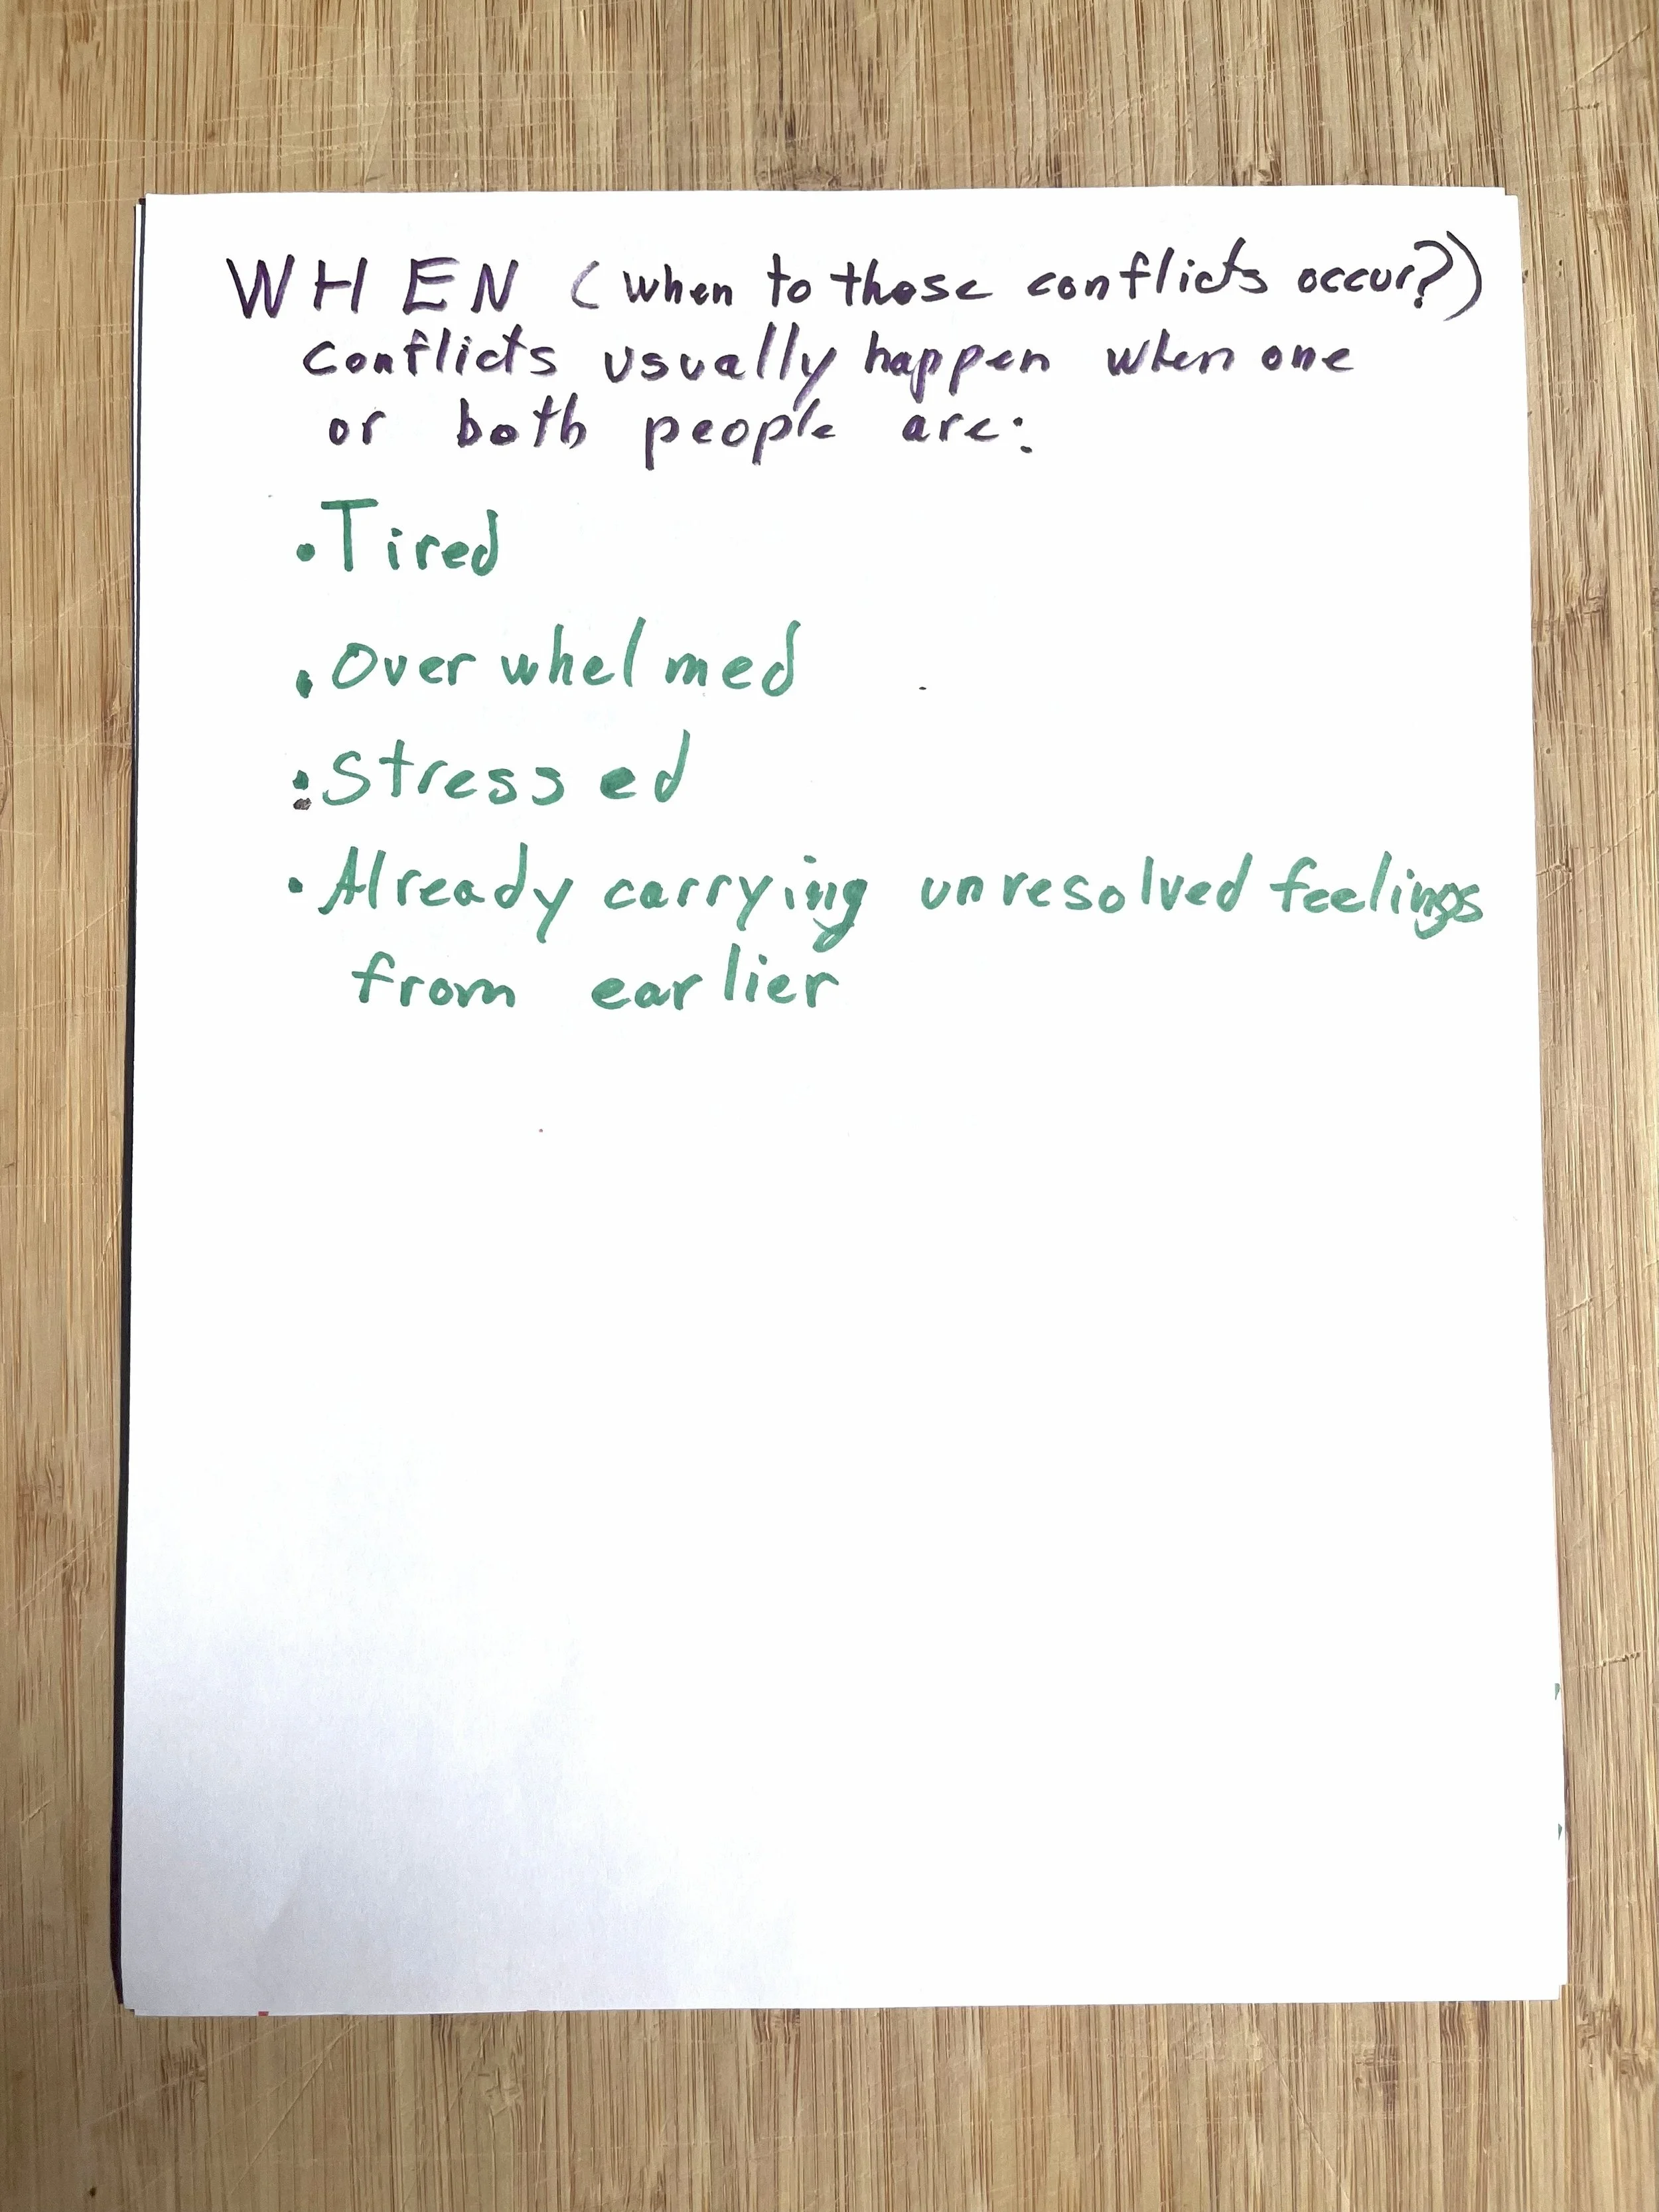 WHEN (when to those conflicts occur?)
conflicts usually happen when one
or both people are:
• Tired
• Overwhelmed
• Stressed
• Already carrying unresolved feelings
from earlier